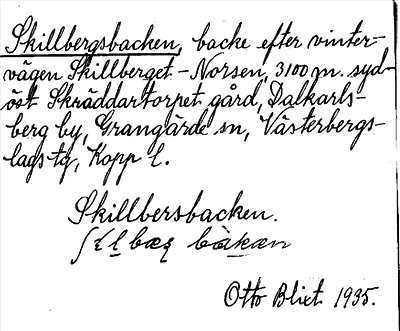 Skillbergsbacken, backe efter vinter-
vägen Skillberget - Norsen, 3100 m. syd-
öst Skräddartorpet gård, Dalkarls-
berg by, Grangärde sn, Västerbergs-
lags tg, Kopp l.
Skillbersbacken.
Otto Blixt 1935.